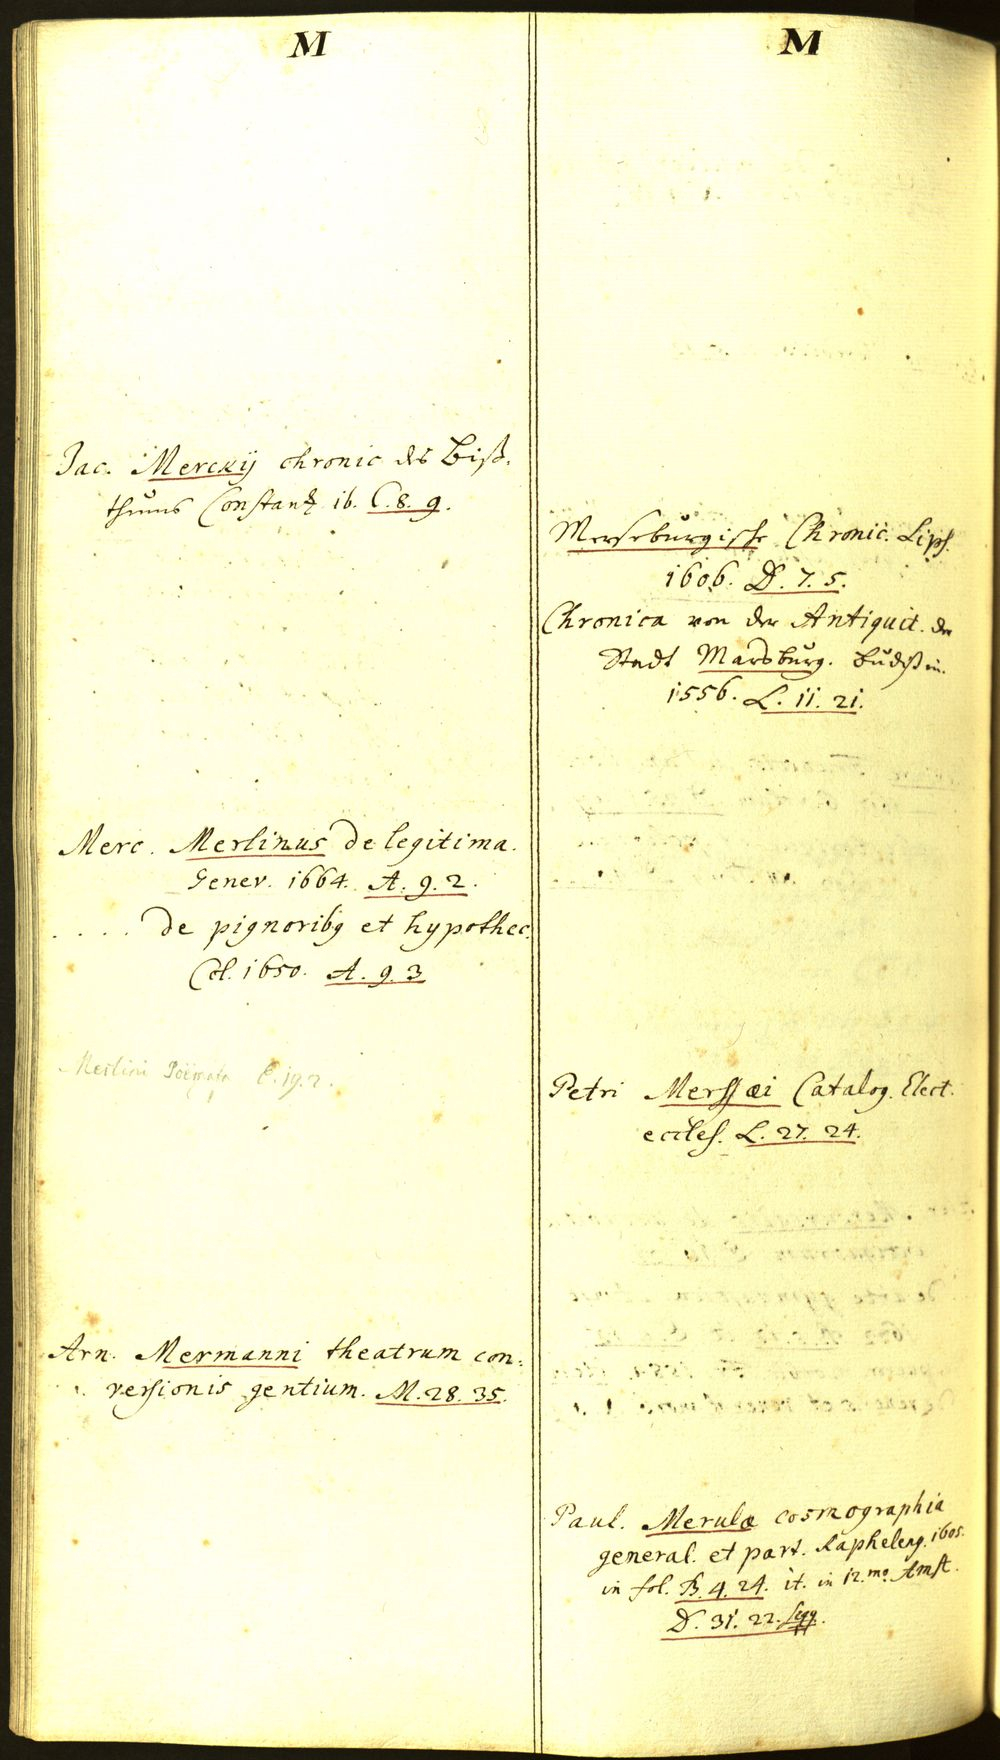 M
Jac. Merckij chronic des Biß-
thums Constantz ib. C. 8. 9.
Merc. Merlinus de legitima.
Genev. 1664. A. 9. 2.
. . . . de pignoribq et hypothec.
Col. 1650. A. 9. 3
Merlini Poëmata C. 19. 2.
Arn. Mermanni theatrum con-
versionis gentium. M. 28. 35.
M
Merseburgische Chronic. Lips.
1606. D. 7. 5.
Chronica von der Antiquit. der
Stadt Marsburg. Budißin.
1556. L. 11. 21.
Petri Merssæi Catalog. Elect.
eccles. L. 27. 24.
Paul. Merulæ cosmographia
general. et part. Rapheleng. 1605.
in fol. B. 4. 24. it. in 12.mo Amst.
D. 31. 22. seqq.